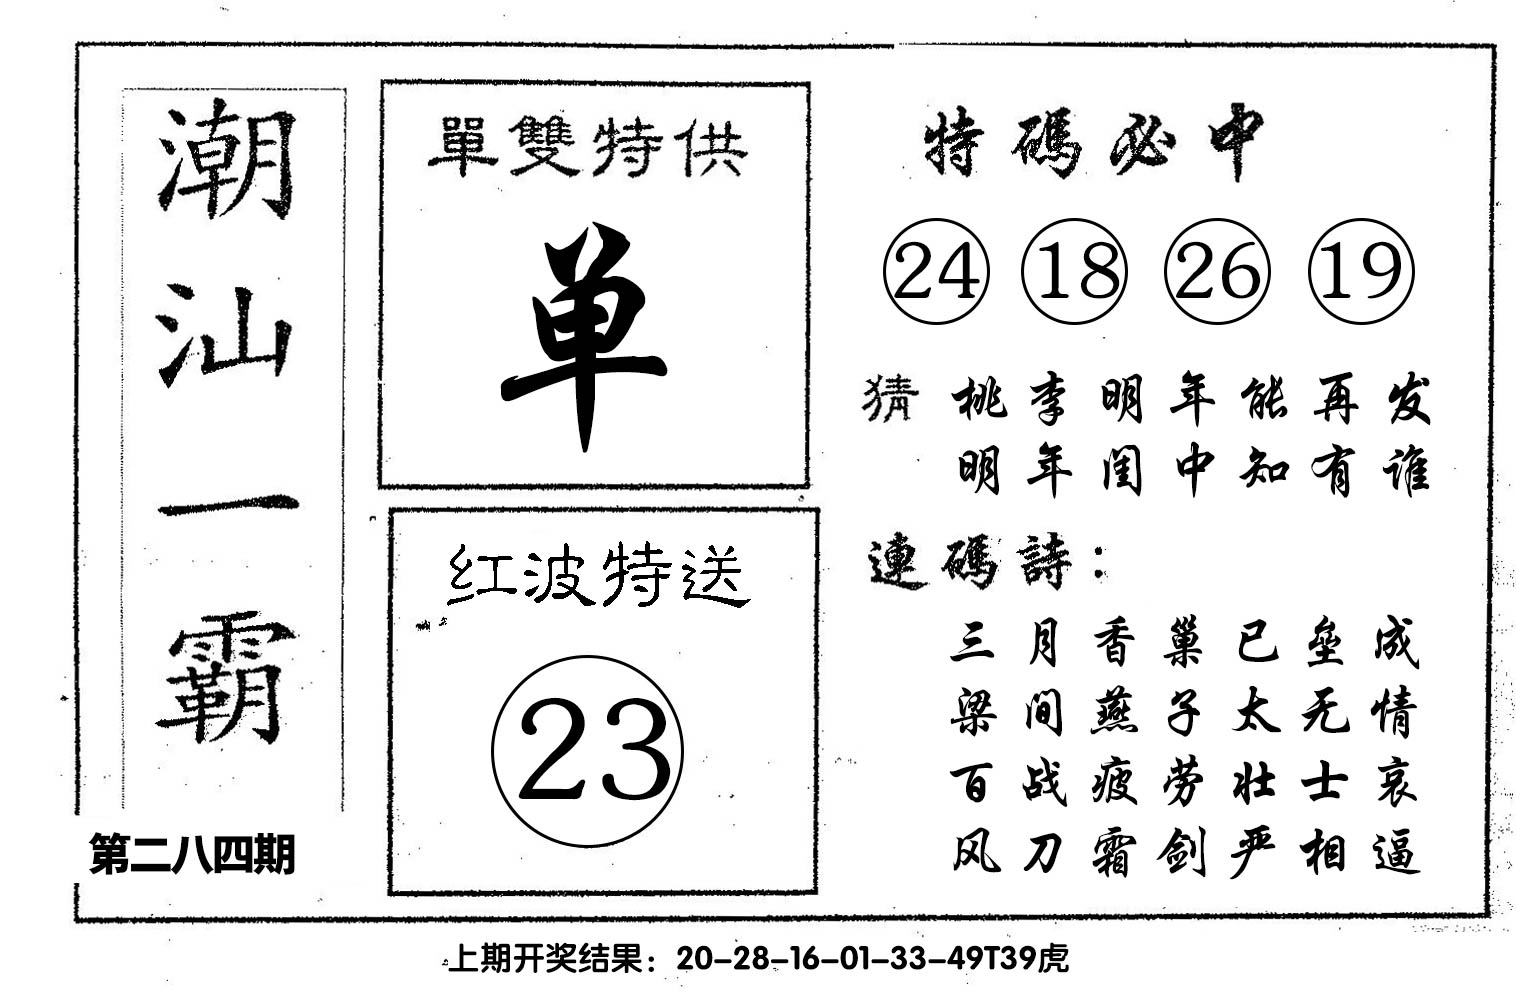 潮汕一霸
第二八四期
單雙特供
单
红波特送
23
特碼必中
24 18 26 19
猜 桃李明年能再发
明年闺中知有谁
連碼詩：
三月香巢已垒成
梁间燕子太无情
百战疲劳壮士哀
风刀霜剑严相逼
上期开奖结果：20-28-16-01-33-49T39虎